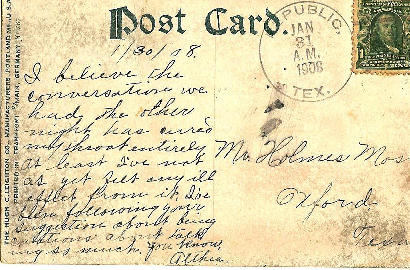 Post Card.
1/30/08.
I believe the
conversation we
had, the other
night has cured
my throat entirely
at least I've not
as yet felt any ill
effect from it. I've
been following your
suggestion about being
cautious about talk-
ing so much, you know,
Althea
REPUBLIC,
JAN
31
A.M.
1908
TEX.
Mr. Holmes Mos
Oxford
Texa
THE HUGH C. LEIGHTON CO., MANUFACTURERS, PORTLAND, ME., U.S.A.
PRINTED IN FRANKFORT MAIN, GERMANY.